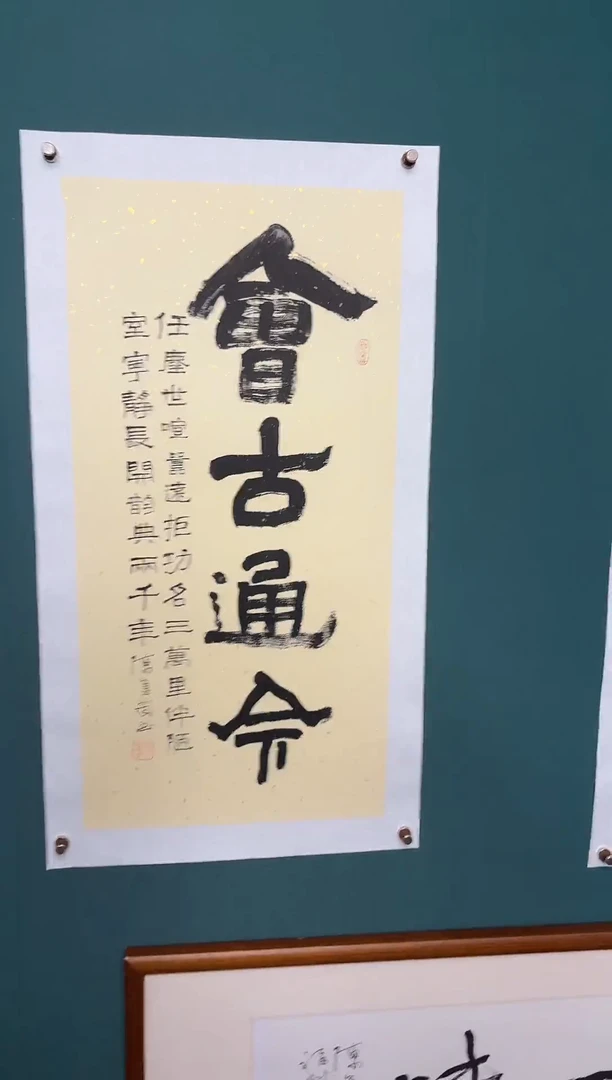 會古通今
任塵世喧囂遠拒功名三萬里伴陋
室寧靜長開韵典兩千年